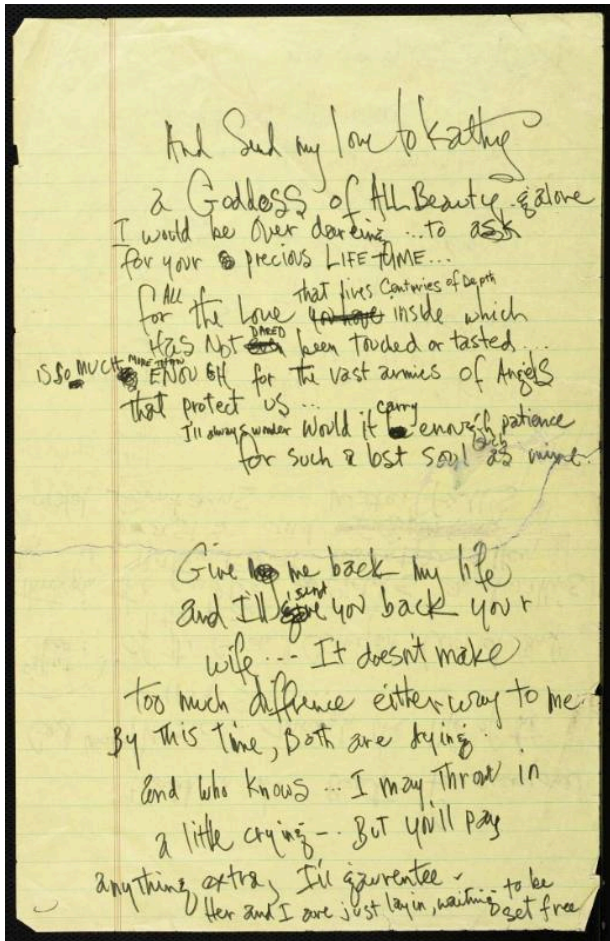 And Send my love to Kathy
a Goddess of All Beauty & alone
I would be over dareing ... to ask
for your precious LIFE TIME ...
for ALL the Love That lives Centuries of Depth inside which
Has Not DARED been touched or tasted ...
IS So MUCH MORE THAN ENOUGH for the vast armies of Angels
that protect us ...
I'll always wonder would it carry enough patience
for such a lost soul as mine.
Give me back my life
and I'll send you back your
wife ... It doesn't make
too much difference either way to me
By this time, Both are dying.
and who knows ... I may throw in
a little crying - . But you'll pay
anything extra, I'll gaurentee -
Her and I are just layin, waiting to be set free